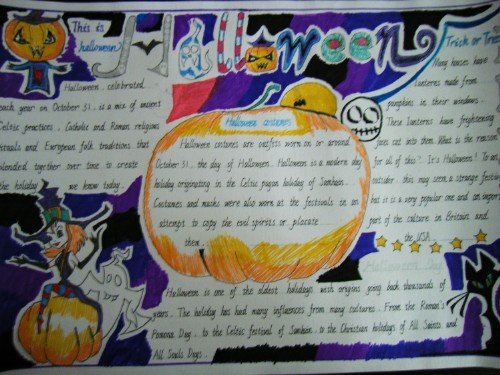 This is
halloween
Halloween
Trick or Trea
Halloween, celebrated
each year on October 31, is a mix of ancient
Celtic practices, Catholic and Roman religious
rituals and European folk traditions that
blended together over time to create
the holiday we know today.
Halloween costumes
Halloween costumes are outfits worn on or around
October 31, the day of Halloween. Halloween is a modern day
holiday originating in the Celtic pagan holiday of Samhain.
Costumes and masks were also worn at the festivals in an
attempt to copy the evil spirits or placate
them.
Many houses have
lanterns made from
pumpkins in their windows.
These lanterns have frightening
faces cut into them. What is the reason
for all of this? It's Halloween! To an
outsider, this may seem a strange festival
but it is a very popular one and an import
part of the culture in Britain and
the USA
Halloween is one of the oldest holidays with origins going back thousands of
years. The holiday has had many influences from many cultures. From the Roman's
Pomona Day, to the Celtic festival of Samhain, to the Christian holidays of All Saints and
All Souls Days.